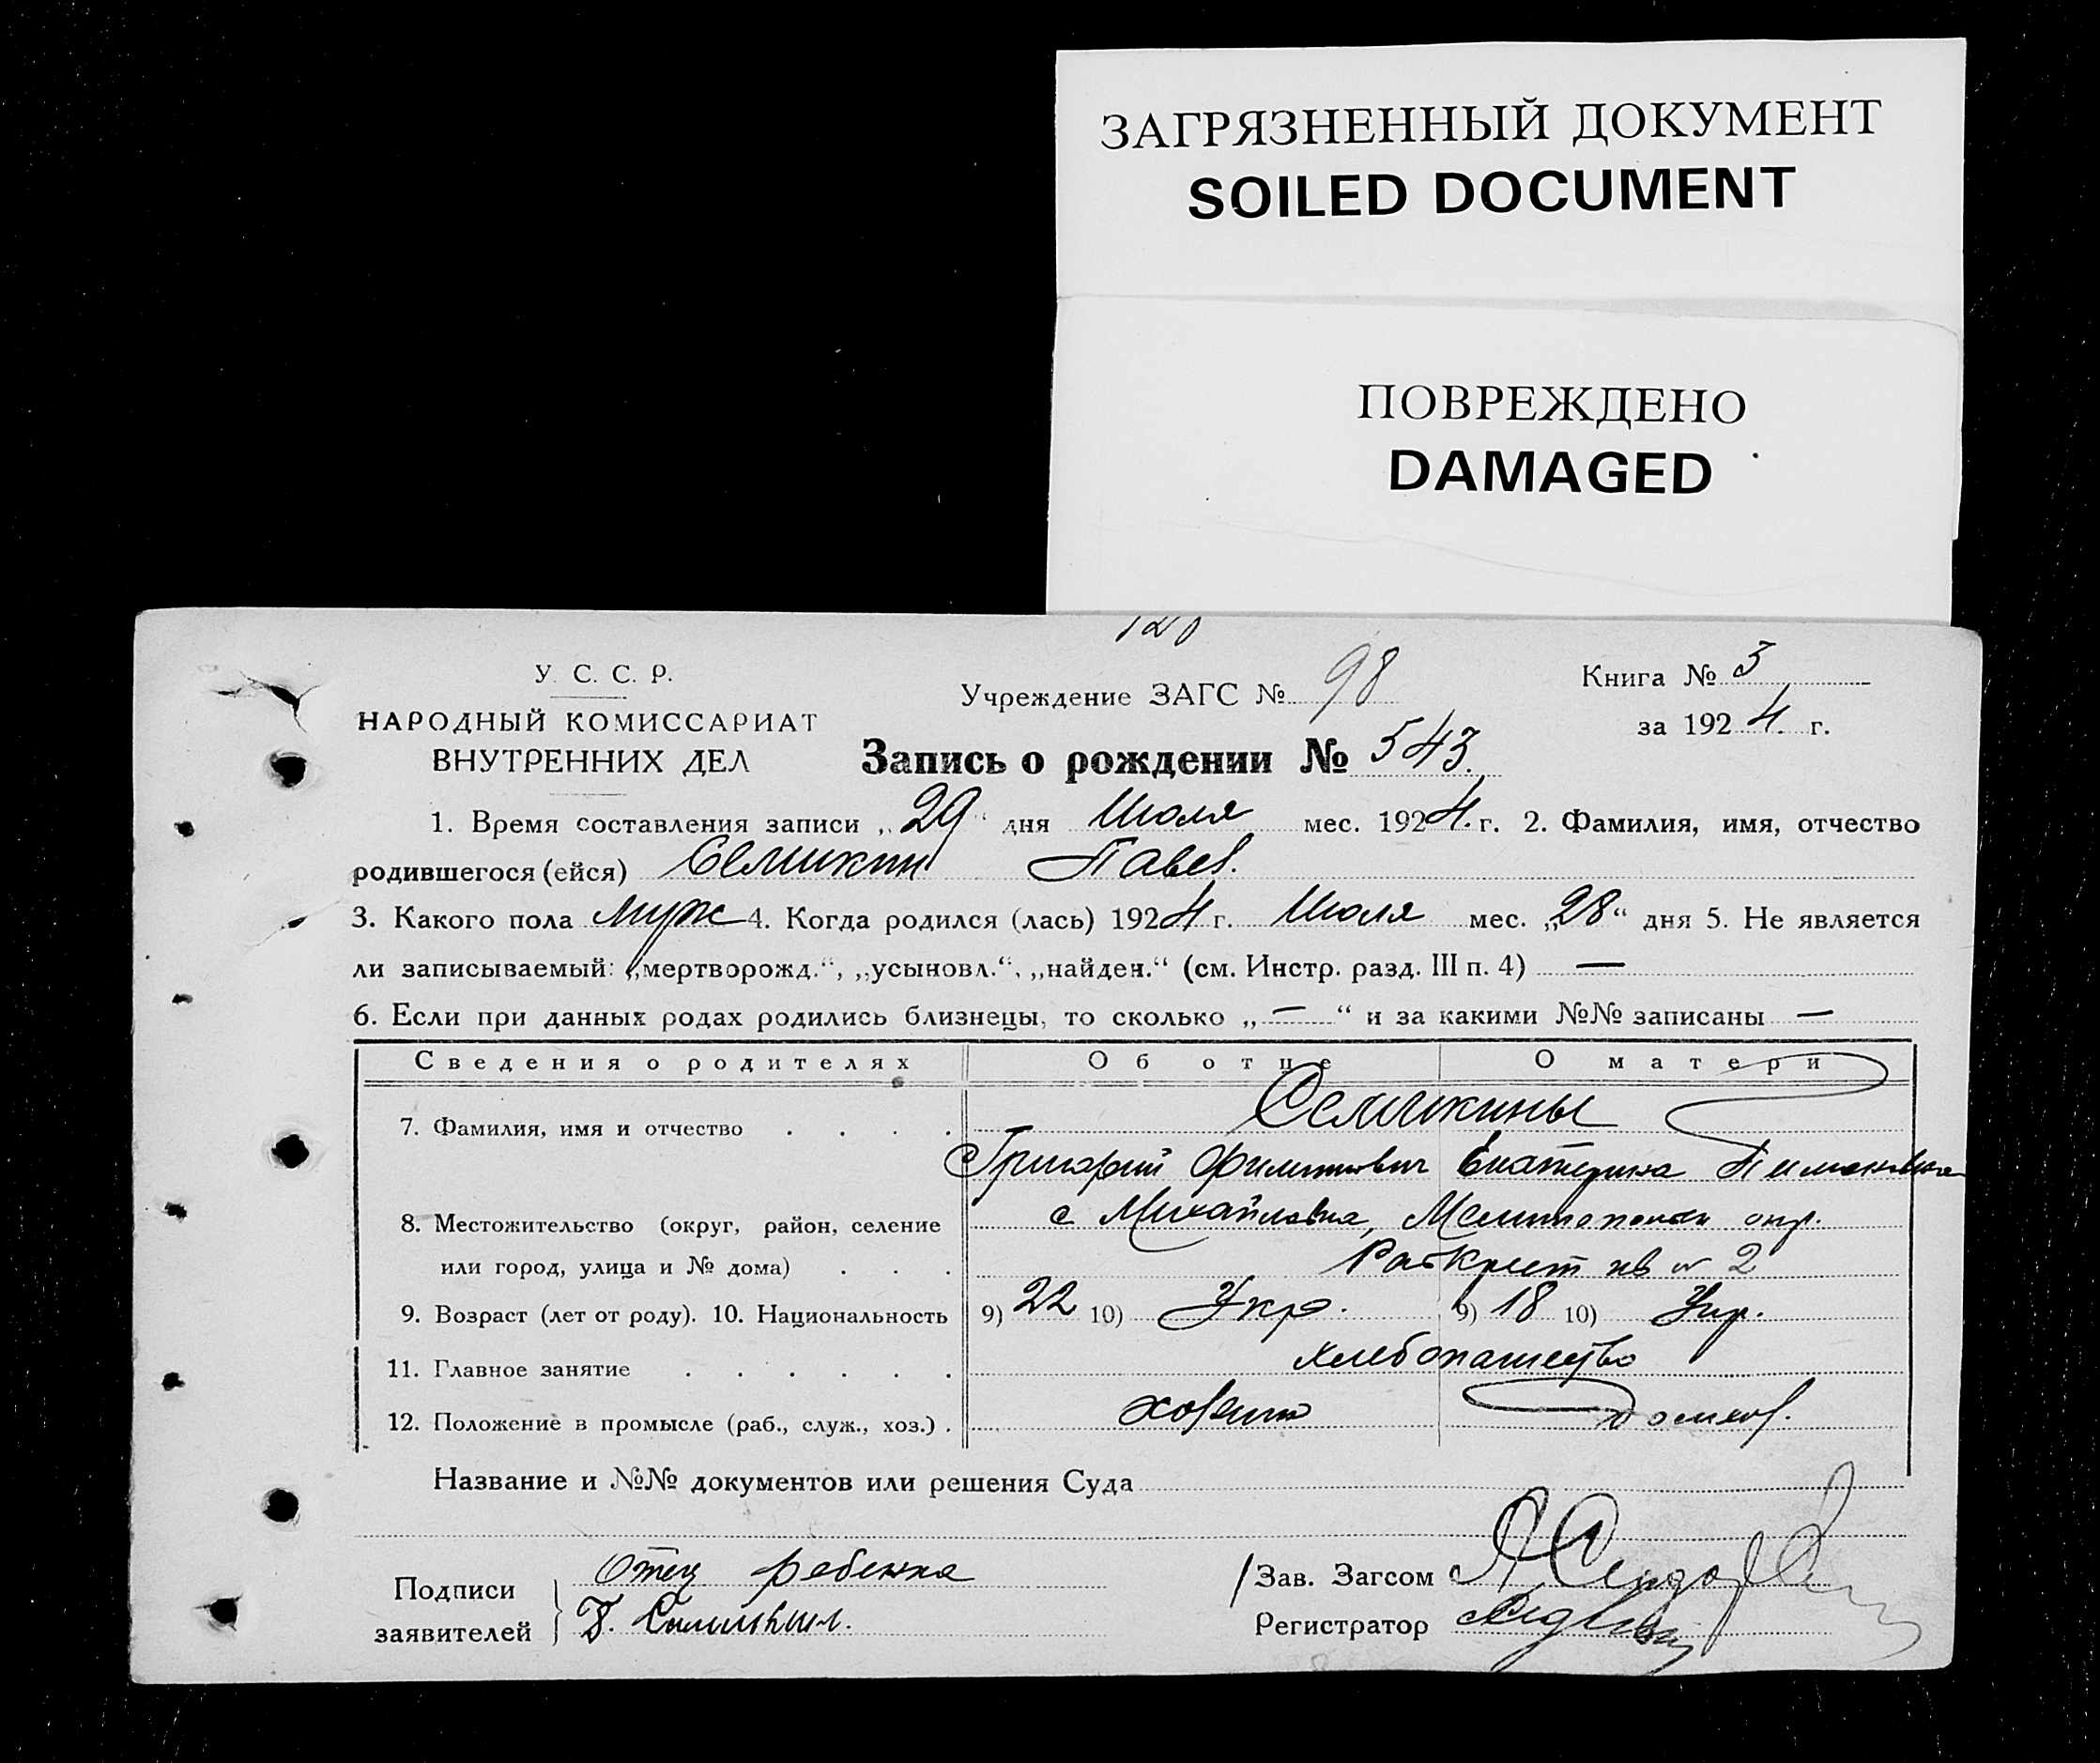 ЗАГРЯЗНЕННЫЙ ДОКУМЕНТ
SOILED DOCUMENT
ПОВРЕЖДЕНО
DAMAGED
У. С. С. Р.
НАРОДНЫЙ КОМИССАРИАТ
ВНУТРЕННИХ ДЕЛ
Учреждение ЗАГС № 98
Книга № 3
за 1924 г.
Запись о рождении № 543.
1. Время составления записи „29“ дня Июля мес. 1924 г. 2. Фамилия, имя, отчество
родившегося (ейся) Семикин Павел.
3. Какого пола муж 4. Когда родился (лась) 1924 г. Июля мес. „28“ дня 5. Не является
ли записываемый: „мертворожд.“, „усыновл.“, „найден.“ (см. Инстр. разд. III п. 4) —
6. Если при данных родах родились близнецы, то сколько „—“ и за какими №№ записаны —
Сведения о родителях Об отце О матери
7. Фамилия, имя и отчество Семикины
Григорий Филиппович Екатерина
8. Местожительство (округ, район, селение с Михайловка, окр.
или город, улица и № дома) кв № 2
9. Возраст (лет от роду). 10. Национальность 9) 22 10) Укр. 9) 18 10) Укр.
11. Главное занятие хлебопашество
12. Положение в промысле (раб., служ., хоз.) хозяин домхоз.
Название и №№ документов или решения Суда
Подписи Отец ребенка
заявителей Г. Семикин.
Зав. Загсом
Регистратор